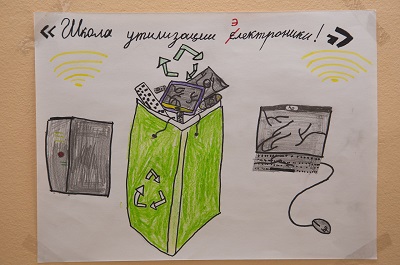 «Школа утилизации Электроники!»